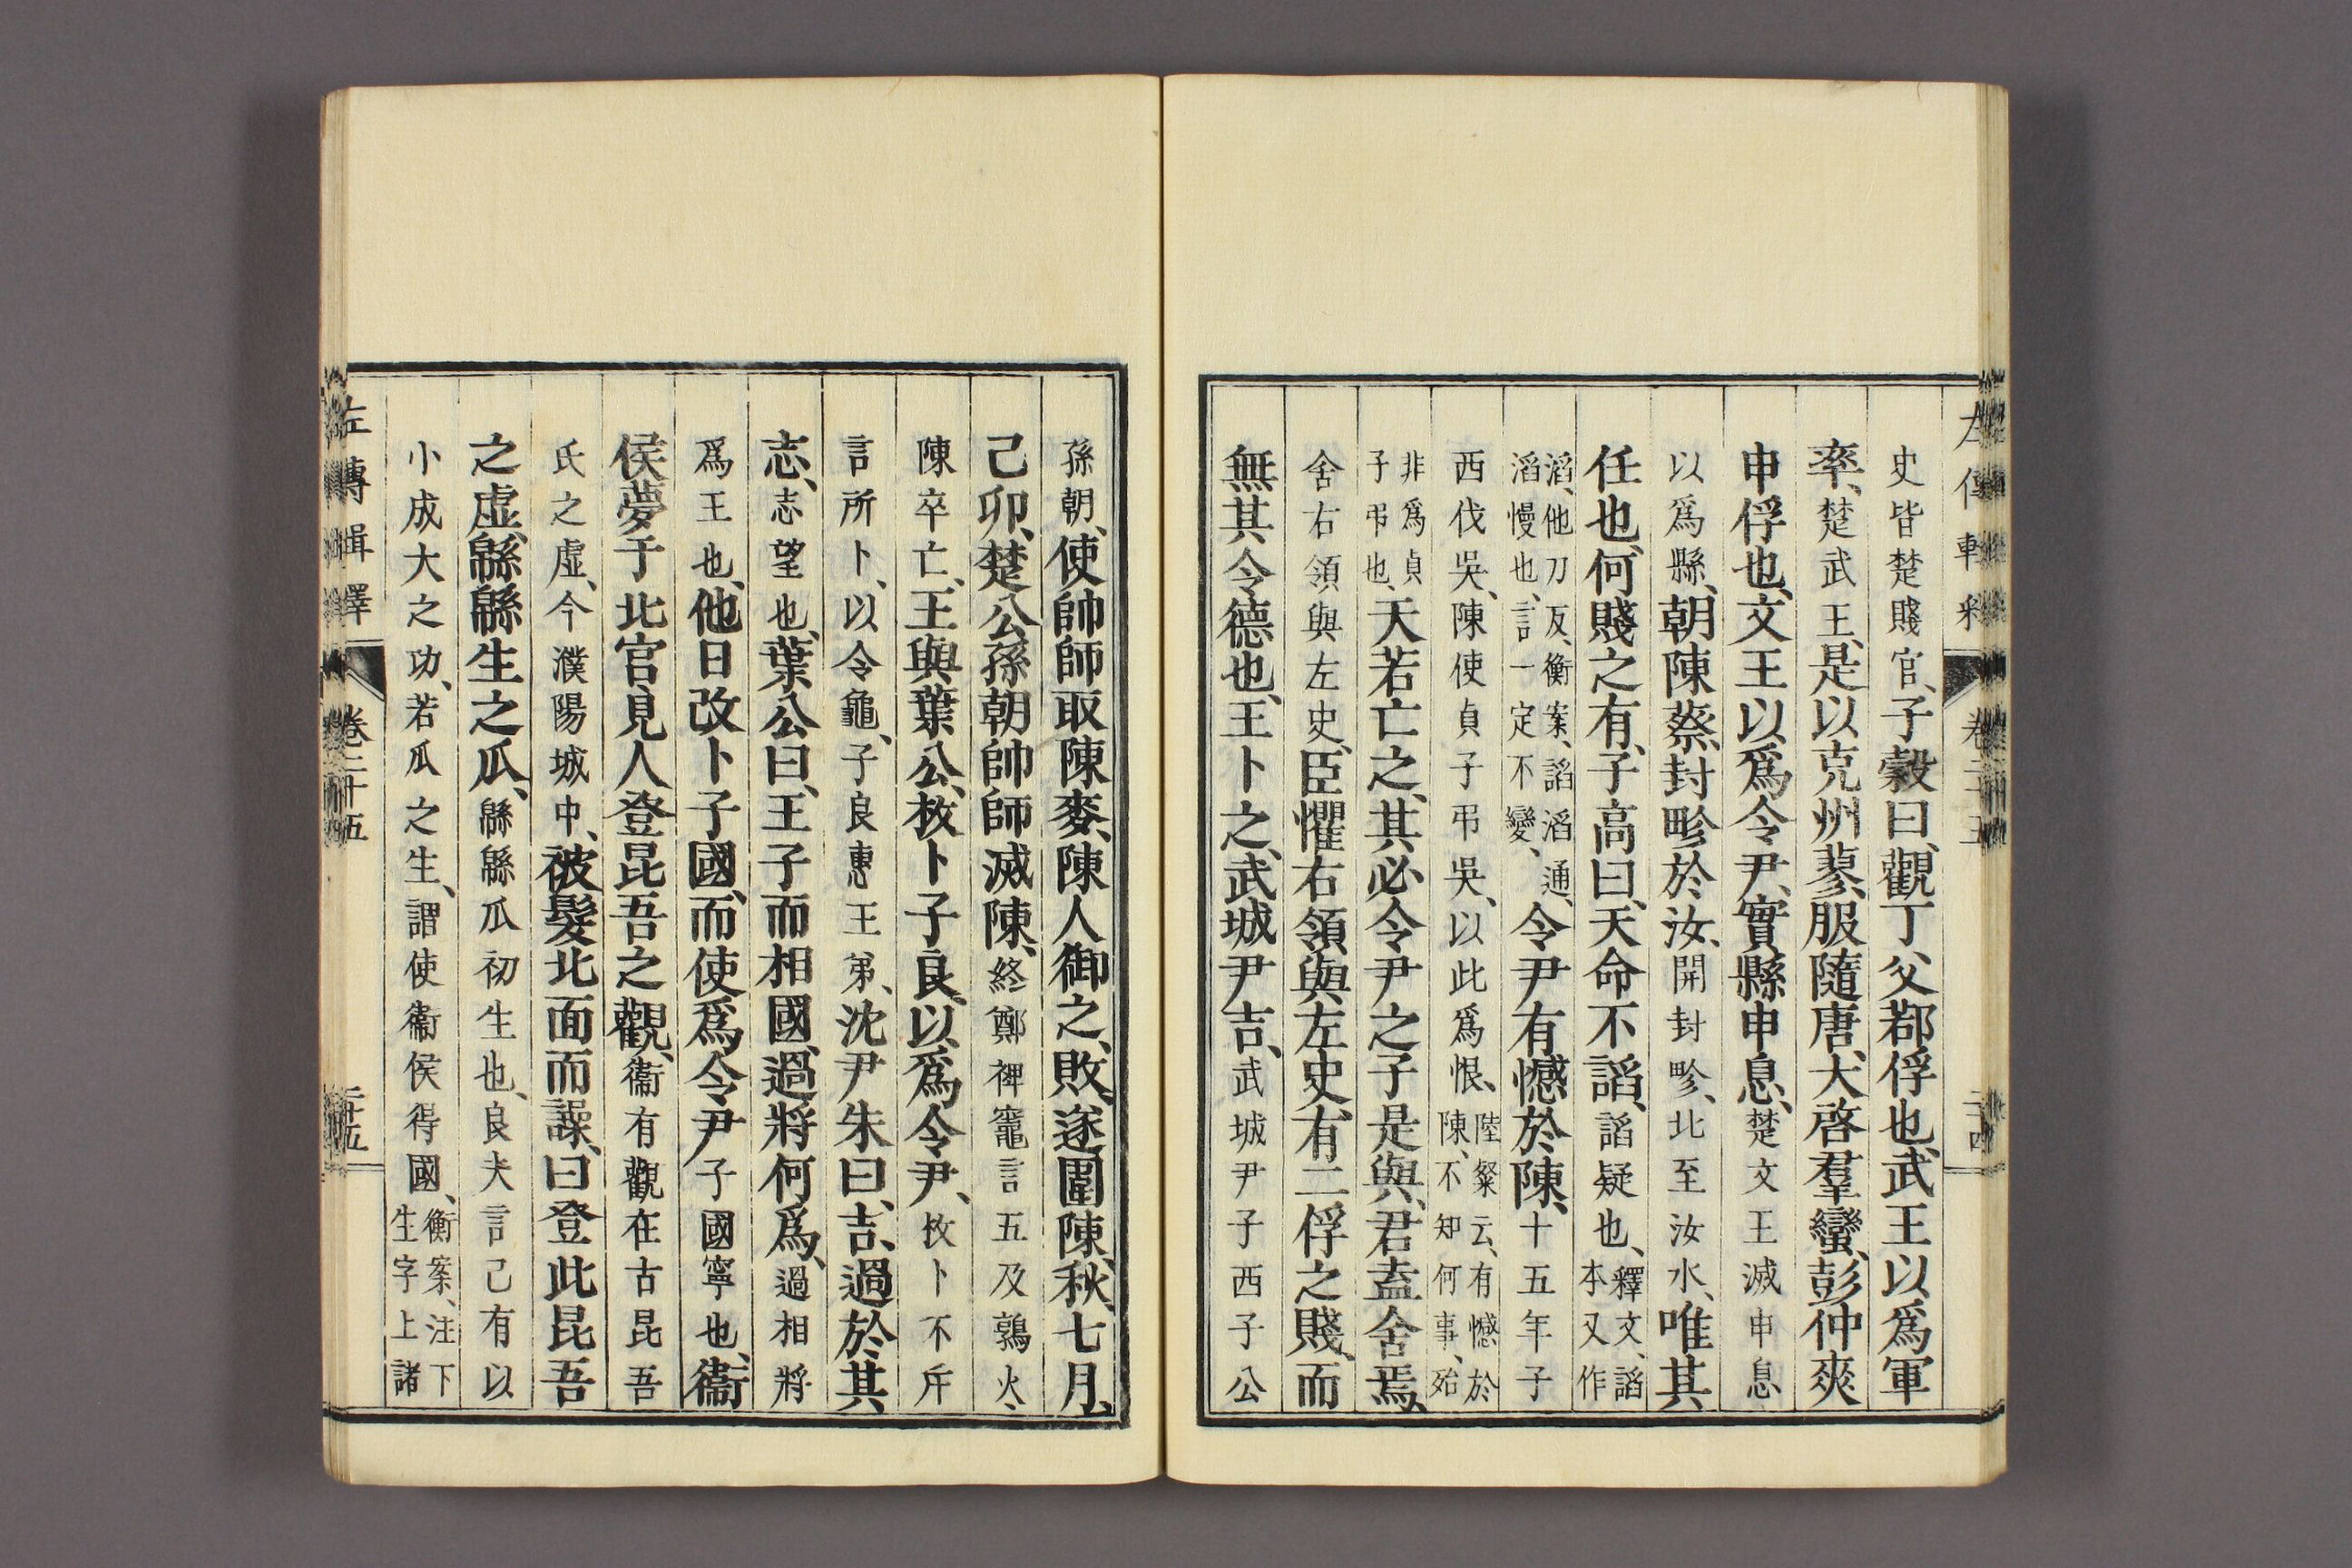 史皆楚賤官、子穀曰、觀丁父、鄀俘也、武王以爲軍
率、楚武王、是以克州蓼、服隨唐、大啓羣蠻、彭仲爽
申俘也、文王以爲令尹、實縣申息、楚文王滅申息
以爲縣、朝陳蔡、封畛於汝、開封畛、北至汝水、唯其
任也、何賤之有、子高曰、天命不謟、謟疑也、釋文、謟
本又作
滔、他刀反、衡案、謟滔通、
滔慢也、言一定不變、令尹有憾於陳、十五年子
西伐吳、陳使貞子弔吳、以此爲恨、陸粲云、有憾於
陳、不知何事、殆
非爲貞
子弔也、天若亡之、其必令尹之子是與、君盍舍焉、
舍右領與左史、臣懼右領與左史、有二俘之賤、而
無其令德也、王卜之、武城尹吉、武城尹子西子公
孫朝、使帥師取陳麥、陳人御之、敗、遂圍陳、秋、七月、
己卯、楚公孫朝帥師滅陳、終鄭裨竈言五及鶉火、
陳卒亡、王與葉公、枚卜子良、以爲令尹、枚卜不斥
言所卜、以令龜、子良惠王弟、沈尹朱曰、吉、過於其
志、志望也、葉公曰、王子而相國、過將何爲、過相將
爲王也、他日改卜子國、而使爲令尹 子國寧也、衞
侯夢于北宮、見人登昆吾之觀、衞有觀在古昆吾
氏之虛、今濮陽城中、被髮北面而譟、曰、登此昆吾
之虛、緜緜生之瓜、緜緜瓜初生也、良夫言己有以
小成大之功、若瓜之生、謂使衞侯得國、衡案、注下
生字上諸
左傳輯釋 卷二十五 二十五